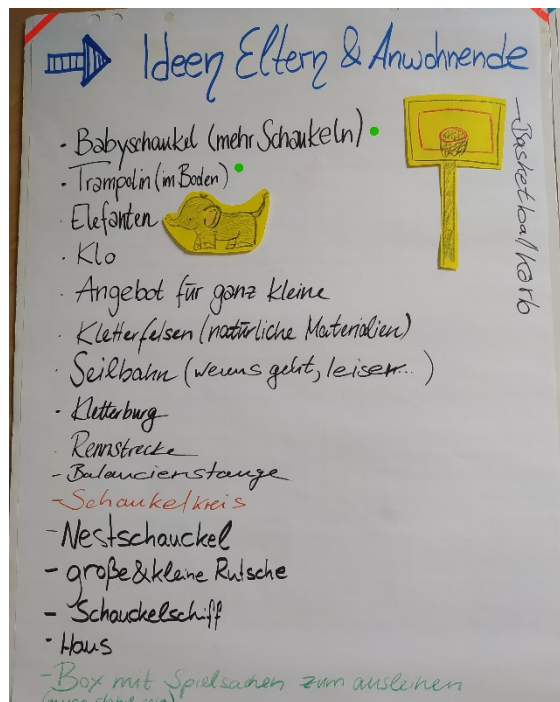 Ideen Eltern & Anwohnende
- Basketballkorb
· Babyschaukel (mehr Schaukeln)
· Trampolin (im Boden)
· Elefanten
· Klo
· Angebot für ganz kleine
· Kletterfelsen (natürliche Materialien)
· Seilbahn (wenns geht, leiser...)
· Kletterburg
· Rennstrecke
- Balancierstange
- Schaukelkreis
- Nestschauckel
- große & kleine Rutsche
- Schauckelschiff
· Haus
- Box mit Spielsachen zum ausleihen